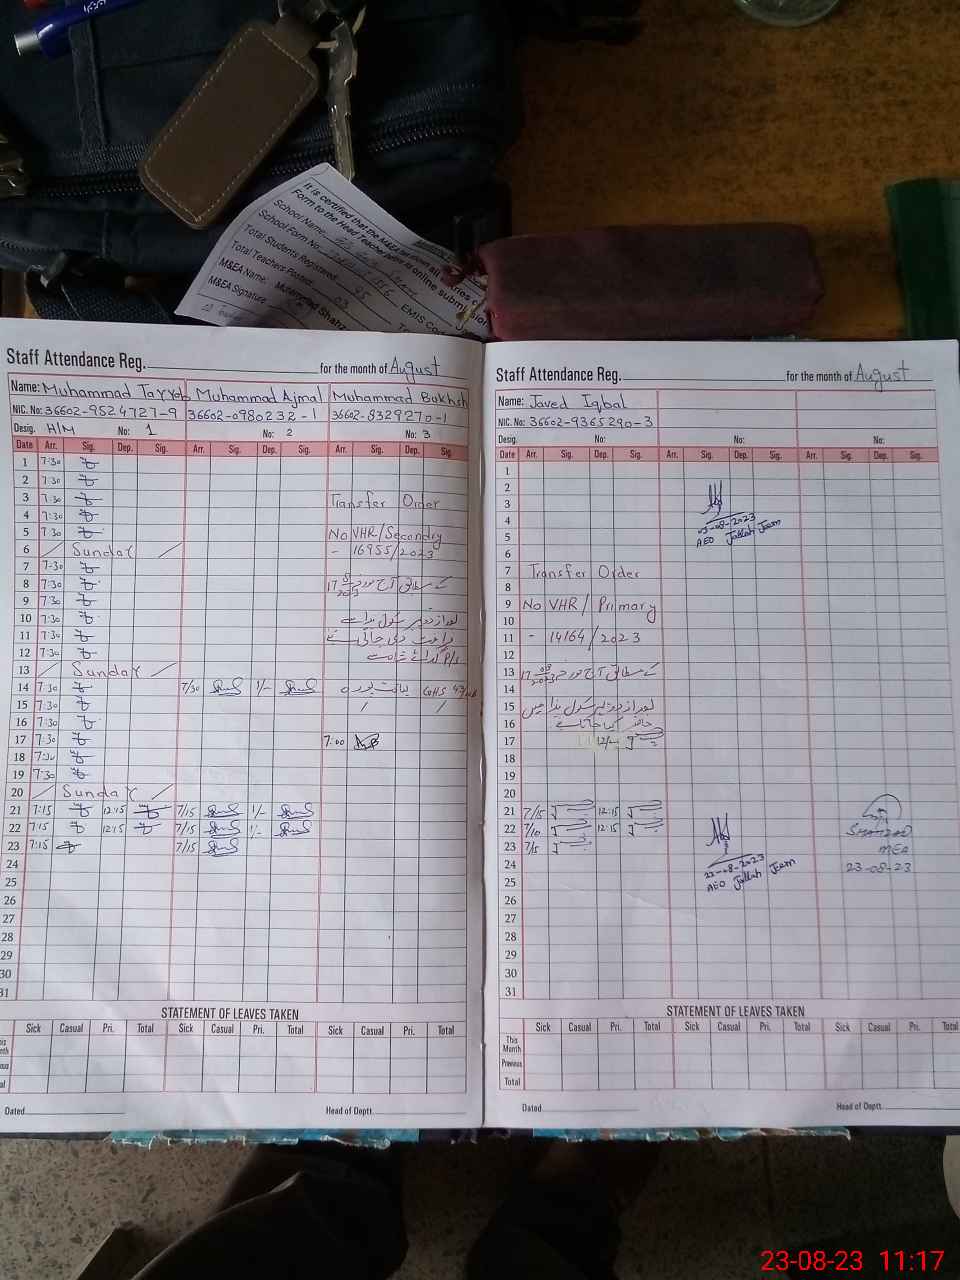 It is certified that the M&EA
Form to the Head Teacher
School Name
School Form No.
Total Students Registered
Total Teachers Posted 03
EMIS
M&EA Name: Muhammad
M&EA Signature
Staff Attendance Reg. for the month of August
Name: Muhammad Tayyab Muhammad Ajmal Muhammad Bakhsh
NIC. No: 36602-9524727-9 36602-0980232-1 36602-8329270-1
Desig. H/M No: 1 No: 2 No: 3
Date Arr. Sig. Dep. Sig. Arr. Sig. Dep. Sig. Arr. Sig. Dep. Sig.
1 7:30
2 7:30
3 7:30 Transfer Order
4 7:30
5 7:30 No VHR/Secondry
6 Sunday - 16955/2023
7 7:30
8 7:30 کے مطابق آج مورخہ 17 8 2023
9 7:30
10 7:30
11 7:30
12 7:30
13 Sunday
14 7:30 7/30 1/-
15 7:30
16 7:30
17 7:30 7:00
18 7:30
19 7:30
20 Sunday
21 7:15 12:15 7/15 1/-
22 7:15 12:15 7/15 1/-
23 7:15 7/15
24
25
26
27
28
29
30
31
STATEMENT OF LEAVES TAKEN
Sick Casual Pri. Total Sick Casual Pri. Total Sick Casual Pri. Total
Dated Head of Deptt.
Staff Attendance Reg. for the month of August
Name: Javed Iqbal
NIC. No: 36602-9365290-3
Desig. No: No: No:
Date Arr. Sig. Dep. Sig. Arr. Sig. Dep. Sig. Arr. Sig. Dep. Sig.
1
2
3
4 03-08-2023
5 AEO Jallah Jeem
6
7 Transfer Order
8
9 No VHR/Primary
10
11 - 14164/2023
12
13 کے مطابق آج مورخہ 17 08 2023
14
15 بعد از دوپہر سکول ہذا میں
16 حاضر کیا جاتا ہے
17 12/-
18
19
20
21 7/15 12:15
22 7/10 12:15 SHAHZAD
23 7/15 MEA
24 23-08-2023 23-08-23
25 AEO Jallah Jeem
26
27
28
29
30
31
STATEMENT OF LEAVES TAKEN
Sick Casual Pri. Total Sick Casual Pri. Total Sick Casual Pri. Total
This Month
Previous
Total
Dated Head of Deptt.
23-08-23 11:17